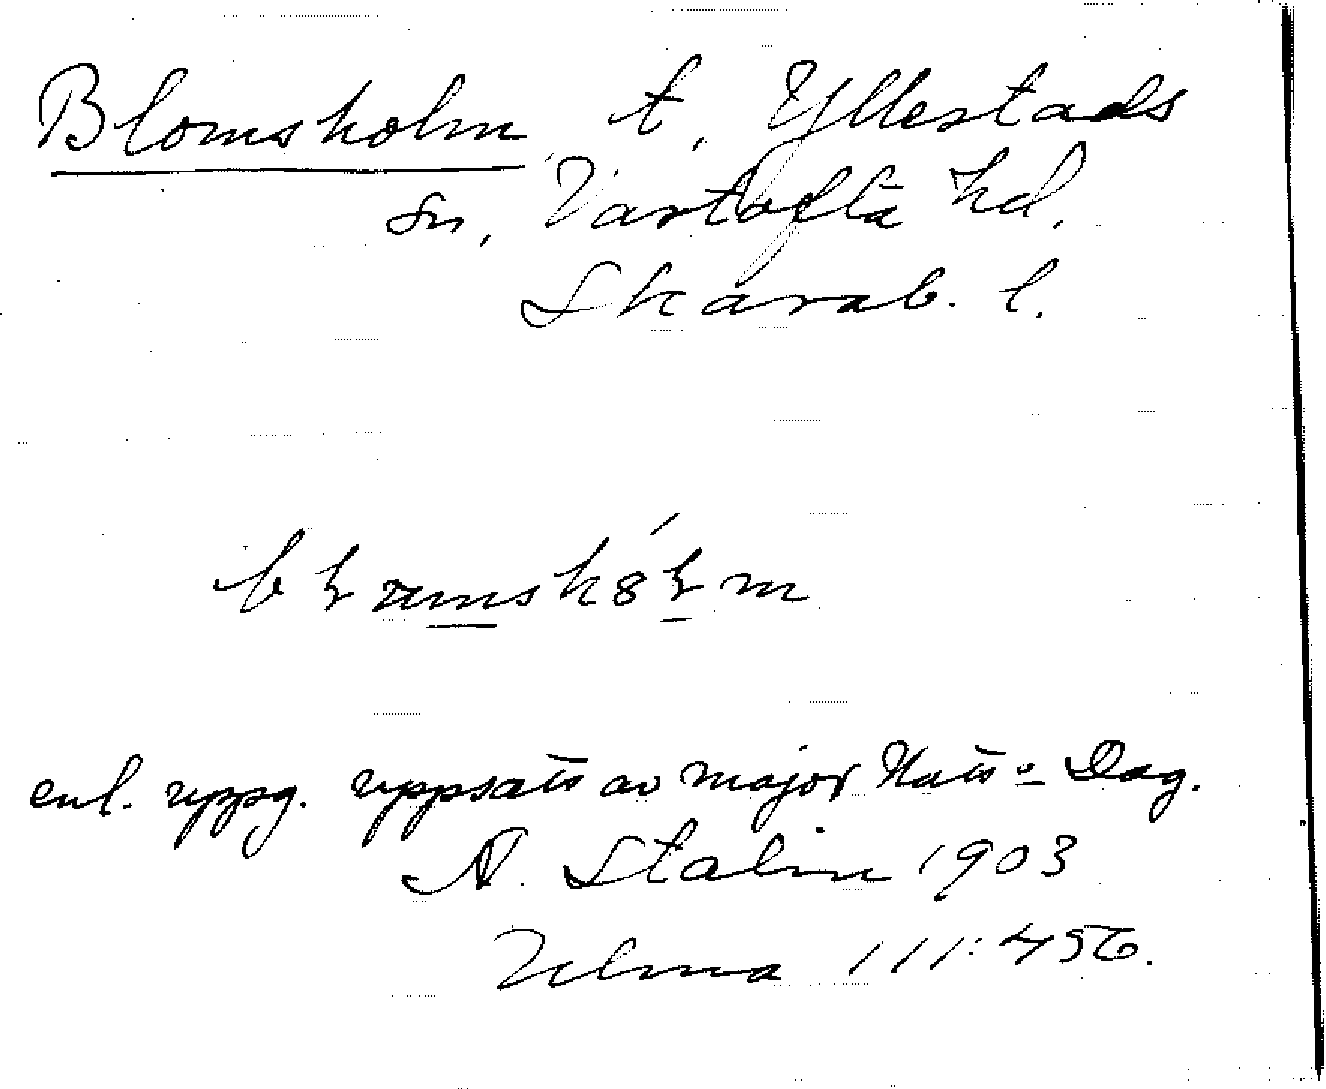 Blomsholm t, Yllestads
sn, Vartofta hd,
Skarab. l.
enl. uppg. uppsats av major Natt-o-Dag.
A. Stalin 1903
Ulma 111:456.